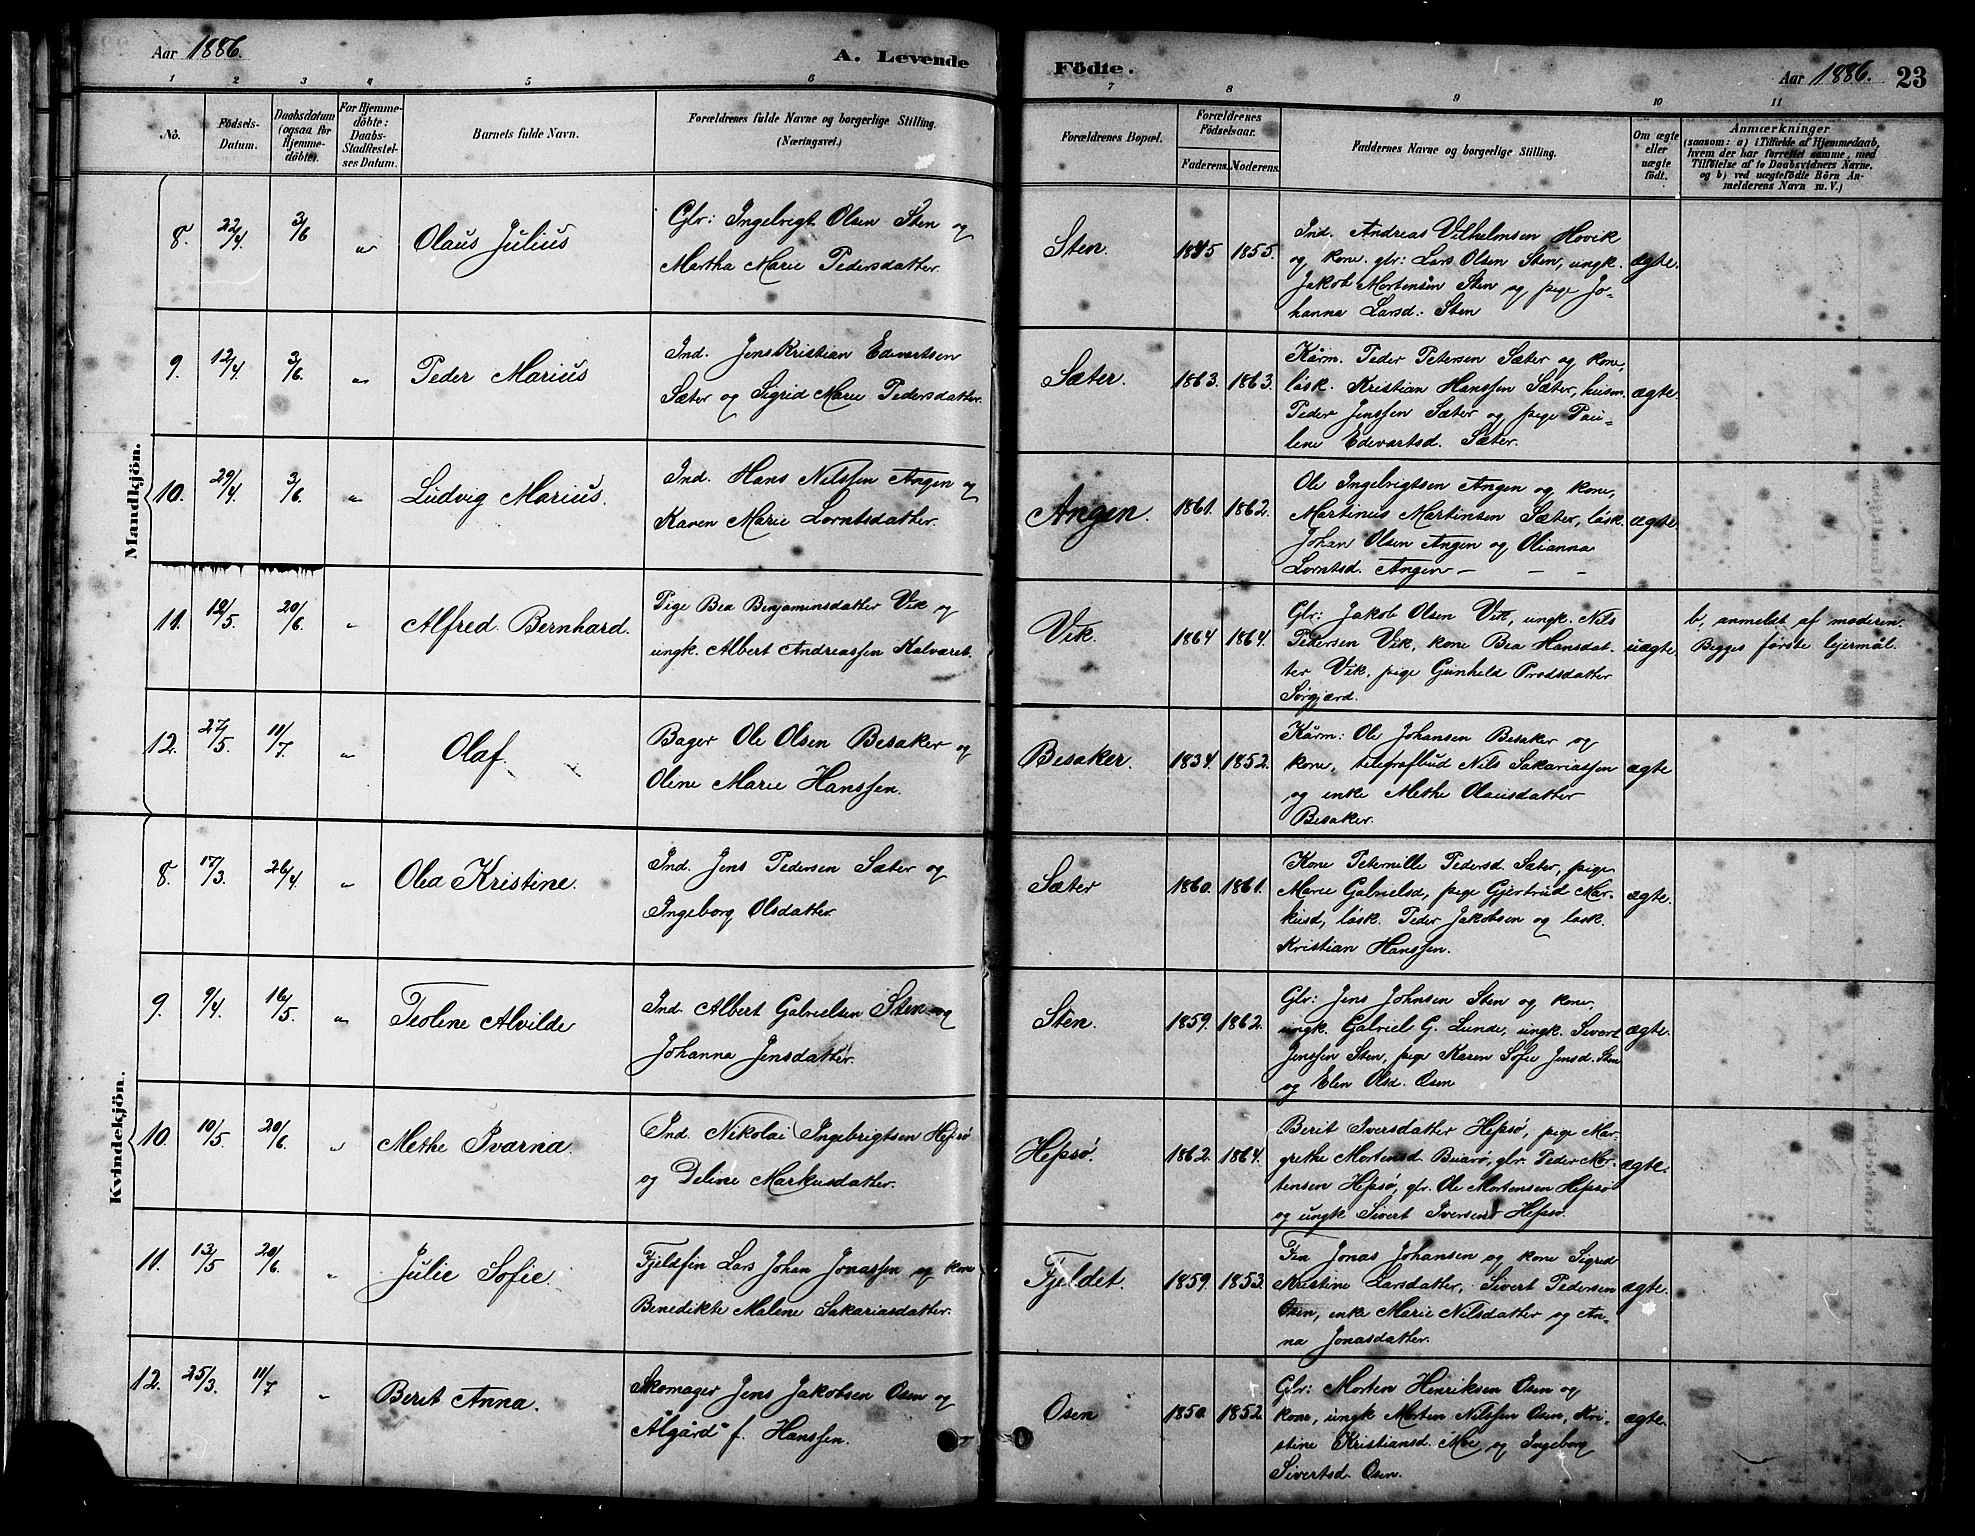 Aar 1886.
A. Levende
Födte.
Aar 1886.
23
1
2
3
4
5
6
7
8
9
10
11
No.
Födsels-
Datum.
Daabsdatum
(ogsaa for
Hjemme-
döbte).
For Hjemme-
döbte:
Daabs-
Stadfæstel-
ses Datum.
Barnets fulde Navn.
Forældrenes fulde Navne og borgerlige Stilling.
(Næringsvei.)
Forældrenes Bopæl.
Forældrenes
Födselsaar.
Faderens.
Moderens.
Faddernes Navne og borgerlige Stilling.
Om ægte
eller
uægte
födt.
Anmærkninger
(saasom: a) i Tilfælde af Hjemmedaab,
hvem der har forrettet samme, med
Tilföielse af to Daabsvidners Navne,
og b) ved uægtefödte Börn An-
melderens Navn m. V.)
Mandkjön.
8. 22/4. 3/6 " Olaus Julius
Gbr: Ingebrigt Olsen Sten og
Martha Marie Pedersdatter.
Sten. 1845 1855.
Ind. Andreas Vilhelmsen Hovik
og kone. gbr: Lars Olsen Sten, ungk.
Jakob Mortensen Sten og pige Jo-
hanna Larsd. Sten
ægte.
9. 12/4. 3/6. " Peder Marius
Ind. Jens Kristian Edvartsen
Sæter og Sigrid Marie Pedersdatter.
Sæter. 1863. 1863.
Kårm. Peder Petersen Sæter og kone,
løsk. Kristian Hanssen Sæter, husm.
Peder Jenssen Sæter og pige Pau-
line Edevartsd. Sæter.
ægte
10. 29/4. 3/6. " Ludvig Marius.
Ind. Hans Nilssen Angen og
Karen Marie Lorntsdatter.
Angen. 1861. 1862.
Ole Ingebrigtsen Angen og kone,
Martinus Martinsen Sæter, løsk.
Johan Olsen Angen og Olianna
Lorntsd. Angen — — —
ægte
11. 12/5. 20/6. " Alfred Bernhard.
Pige Bea Benjaminsdatter Vik og
ungk. Albert Andreassen Kalvaret.
Vik. 1864 1864.
Gbr: Jakob Olsen Vik, ungk. Nils
Pedersen Vik, kone Bea Hansdat-
ter Vik, pige Gunhild Prodsdatter
Sørgjærd.
uægte
b, anmeldt af moderen.
Begges første lejermål.
12. 27/5. 11/7. " Olaf.
Bager Ole Olsen Besaker og
Oline Marie Hanssen.
Besaker. 1834. 1852.
Kårm: Ole Johansen Besaker og
kone, telegrafbud Nils Sakariassen
og enke Methe Olausdatter
Besaker.
ægte
Kvindekjön.
8. 17/3. 26/4. " Olea Kristine.
Ind. Jens Pedersen Sæter og
Ingeborg Olsdatter.
Sæter 1860. 1861.
Kone Peternille Pedersd. Sæter, pige
Marie Gabrielsd, pige Gjertrud Mar-
kusd, løsk. Peder Jakobsen og løsk.
Kristian Hanssen.
ægte.
9. 9/4. 16/5. " Teoline Alvilde
Ind. Albert Gabrielsen Sten og
Johanna Jensdatter.
Sten. 1859. 1862.
Gbr: Jens Johnsen Sten og kone,
ungk. Gabriel G. Lunde, ungk. Sivert
Jenssen Sten, pige Karen Sofie Jensd. Sten
og Elen Olsd. Osen
ægte.
10. 10/5. 20/6. " Methe Ivarna.
Ind. Nikolai Ingebrigtsen Hepsø
og Deline Markusdatter.
Hepsø. 1862. 1864.
Berit Iversdatter Hepsø, pige Mar-
grethe Mortensd. Buarø, gbr. Peder Mor-
tensen Hepsø, gbr. Ole Mortensen Hepsø
og ungk Sivert Iversen Hepsø.
ægte.
11. 13/5. 20/6. " Julie Sofie.
Fjeldfin Lars Johan Jonassen og kone
Benedikte Malene Sakariasdatter.
Fjeldet. 1859. 1853.
Fin Jonas Johansen og kone Sigrid
Kristine Larsdatter, Sivert Pedersen
Osen, enke Marie Nilsdatter og An-
na Jonasdatter.
ægte.
12. 25/3. 11/7 " Berit Anna.
Skomager Jens Jakobsen Osen og
Ålgård f. Hanssen.
Osen 1850. 1852.
Gbr: Morten Henriksen Osen og
kone, ungk Morten Nilssen Osen, Kri-
stine Kristiansd. Moe og Ingeborg
Sivertsd. Osen.
ægte.